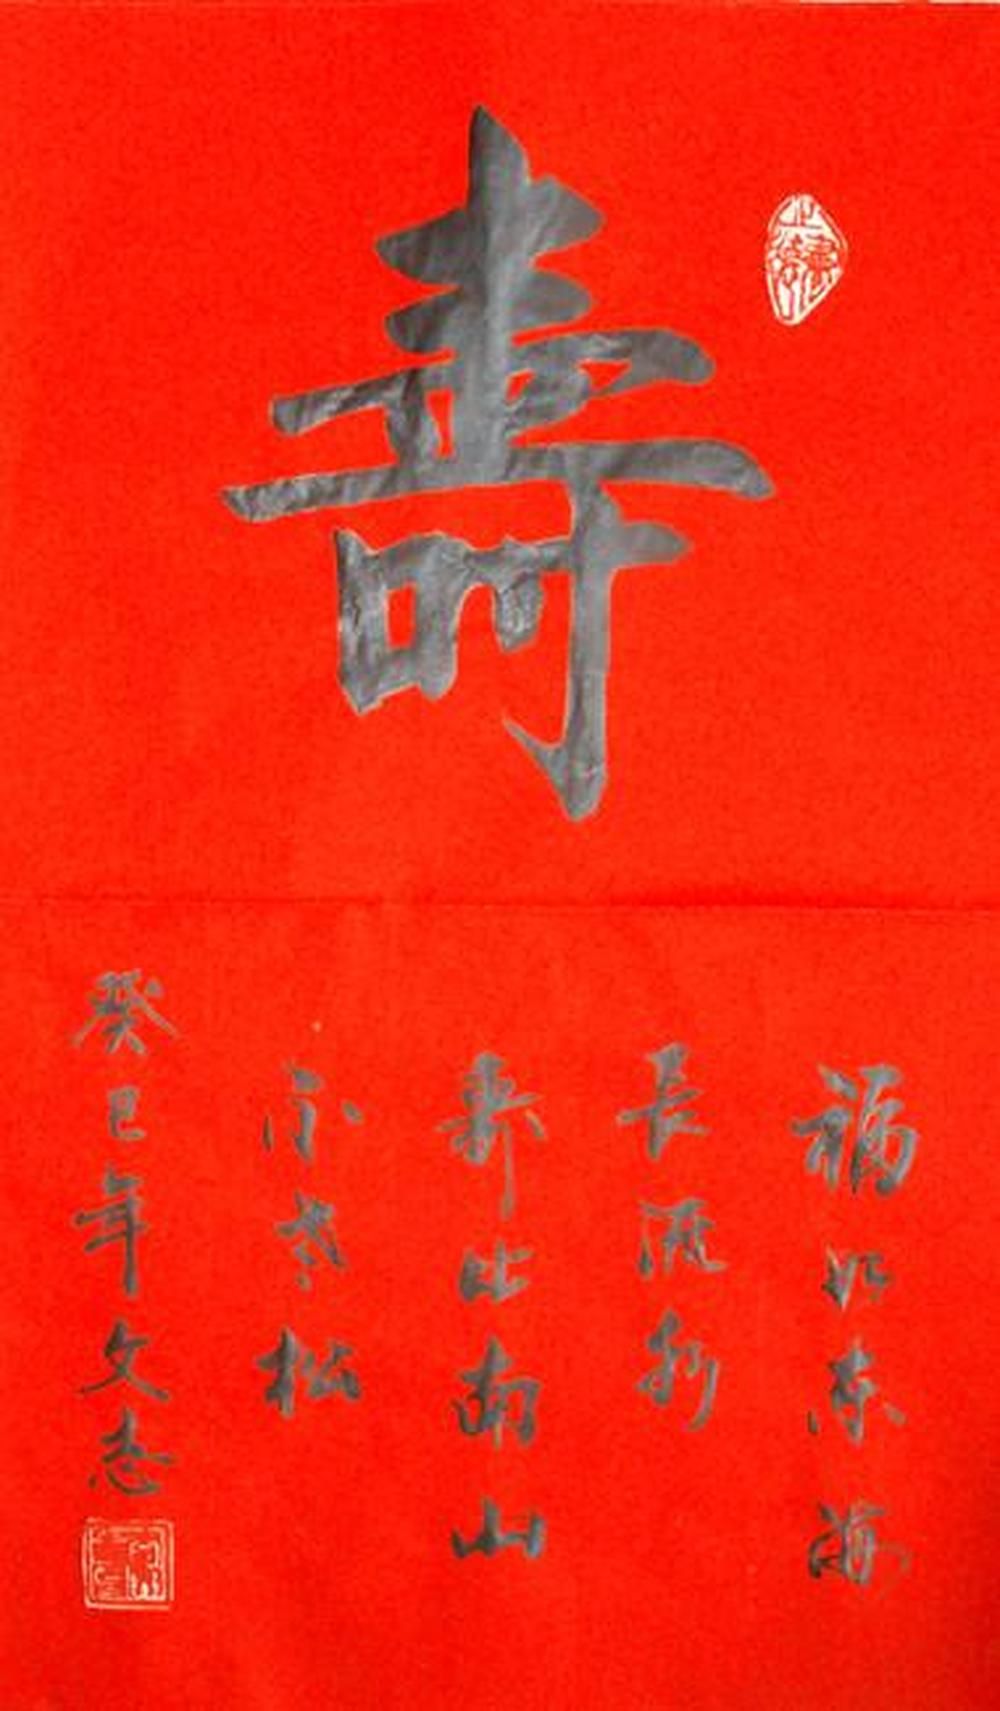 壽
福如东海
長流水
寿比南山
不老松
癸巳年文志